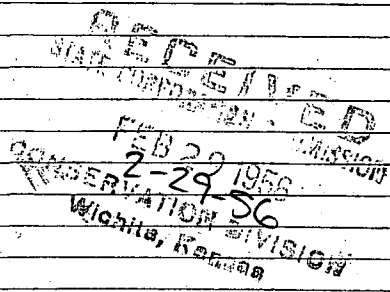 RECEIVED
STATE CORPORATION COMMISSION
FEB 29 1956
2-29-56
CONSERVATION DIVISION
Wichita, Kansas